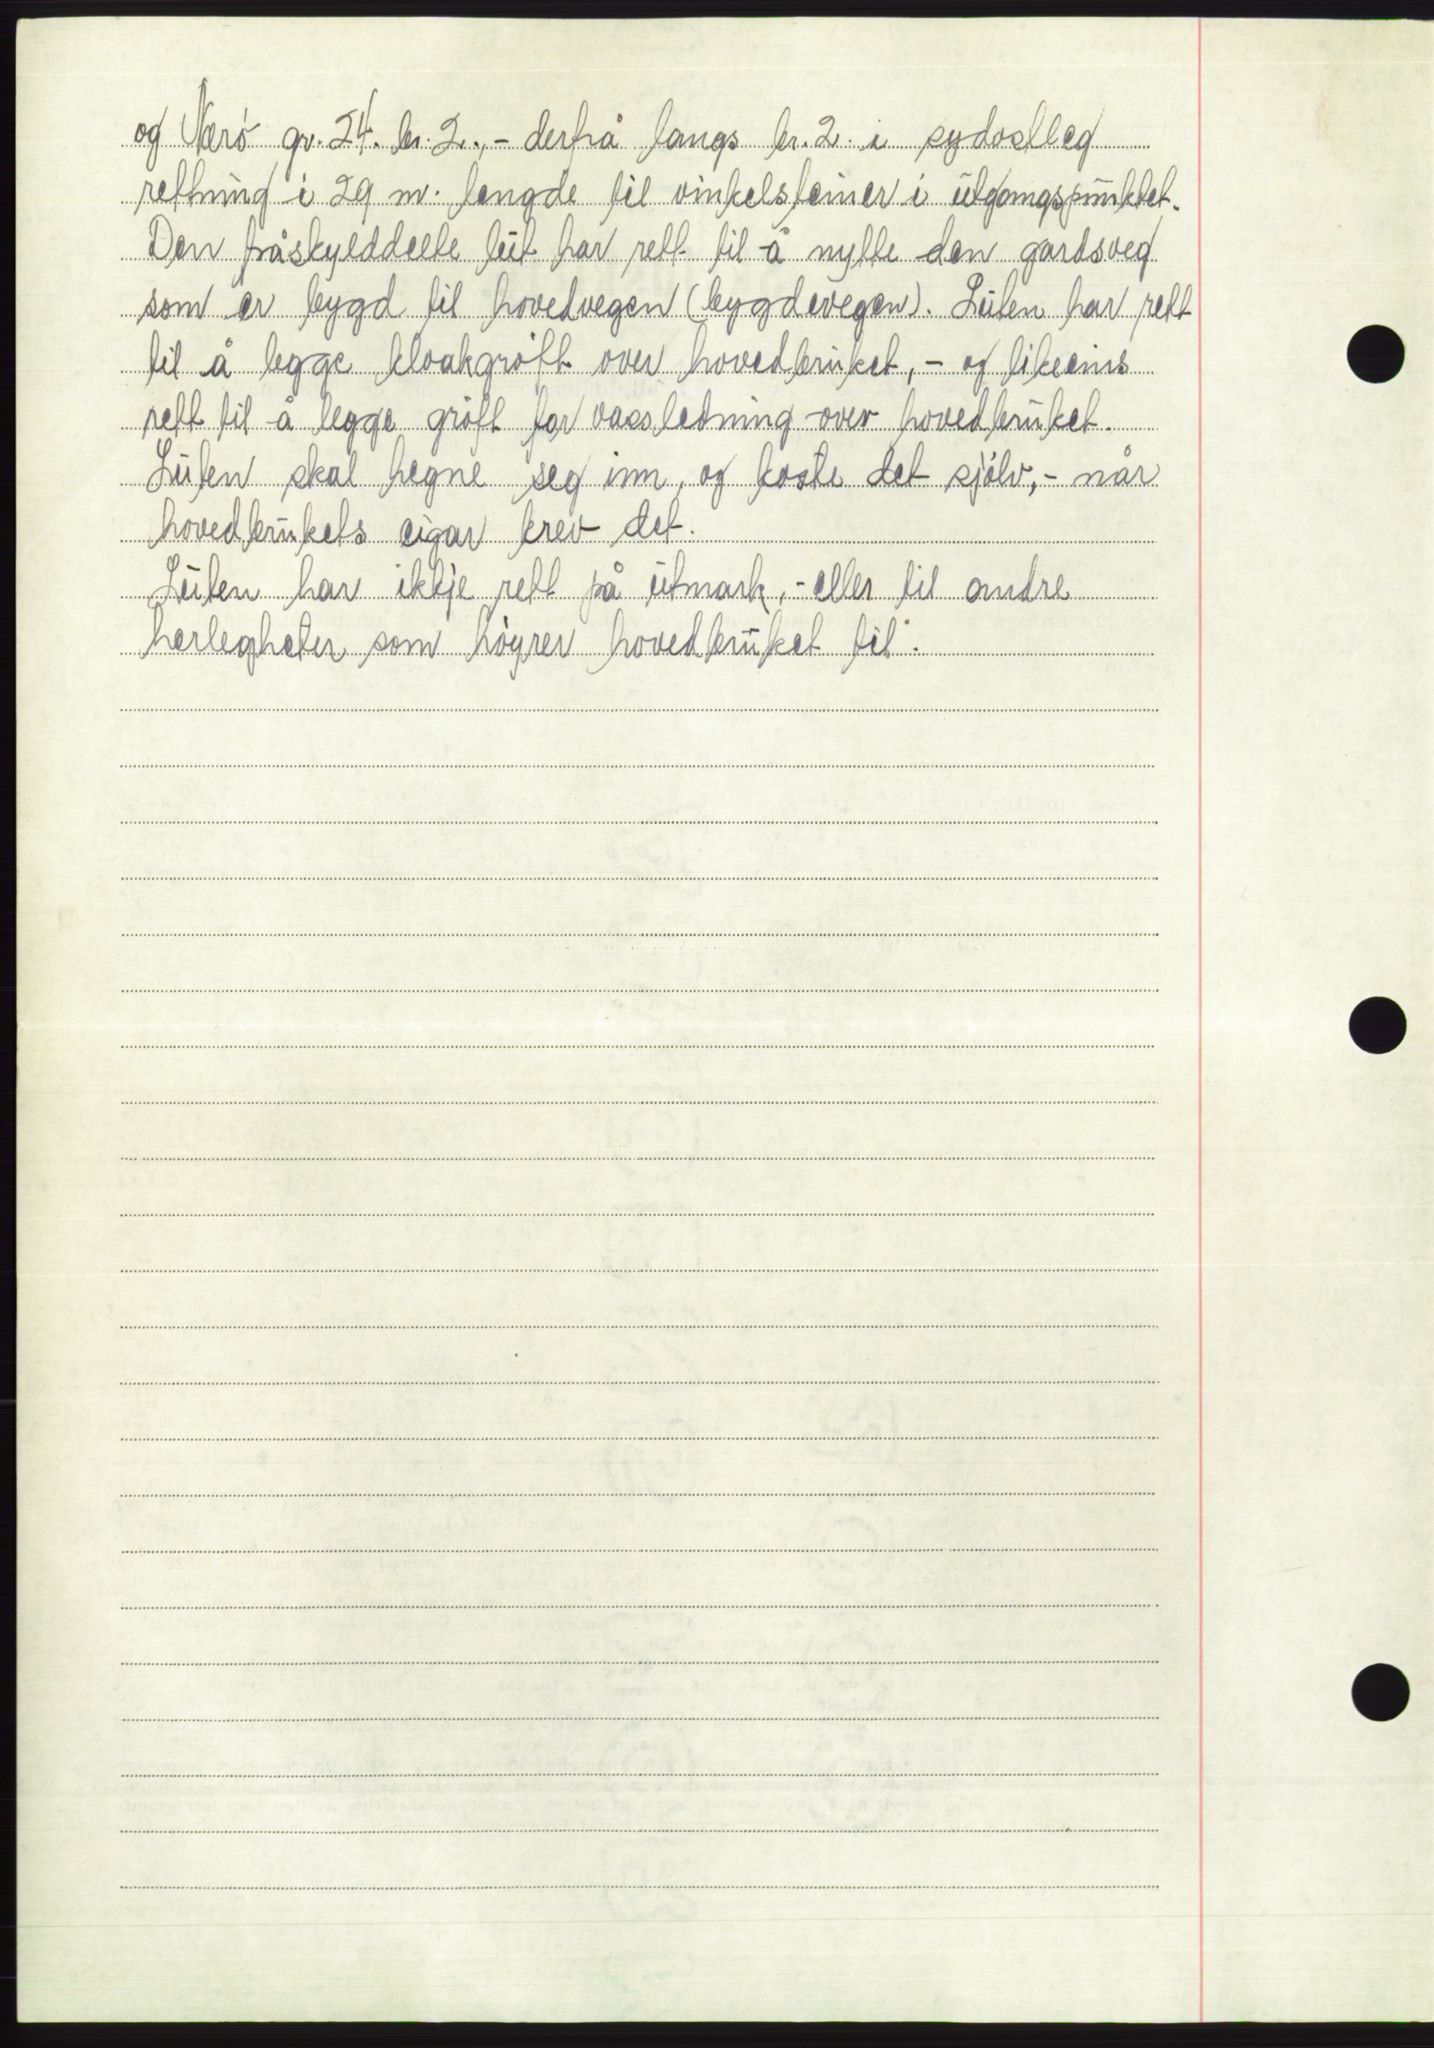 og Nærö gr. 24. br. 2., - derfrå langs br. 2. i sydostleg
rettning i 29 m. lengde til vinkelsteiner i utgangspunktet.
Den fråskylddelte lut har rett til å nytte den gardsveg
som er bygd til hovedvegen (bygdevegen). Luten har rett
til å legge kloakgröft over hovedbruket, - og likeeins
rett til å legge gröft for vassledning over hovedbruket.
Luten skal hegne seg inn, og koste det sjölv, - når
hovedbrukets eigar krev det.
Luten har ikkje rett på utmark, - eller til andre
herlegheter som höyrer hovedbruket til.